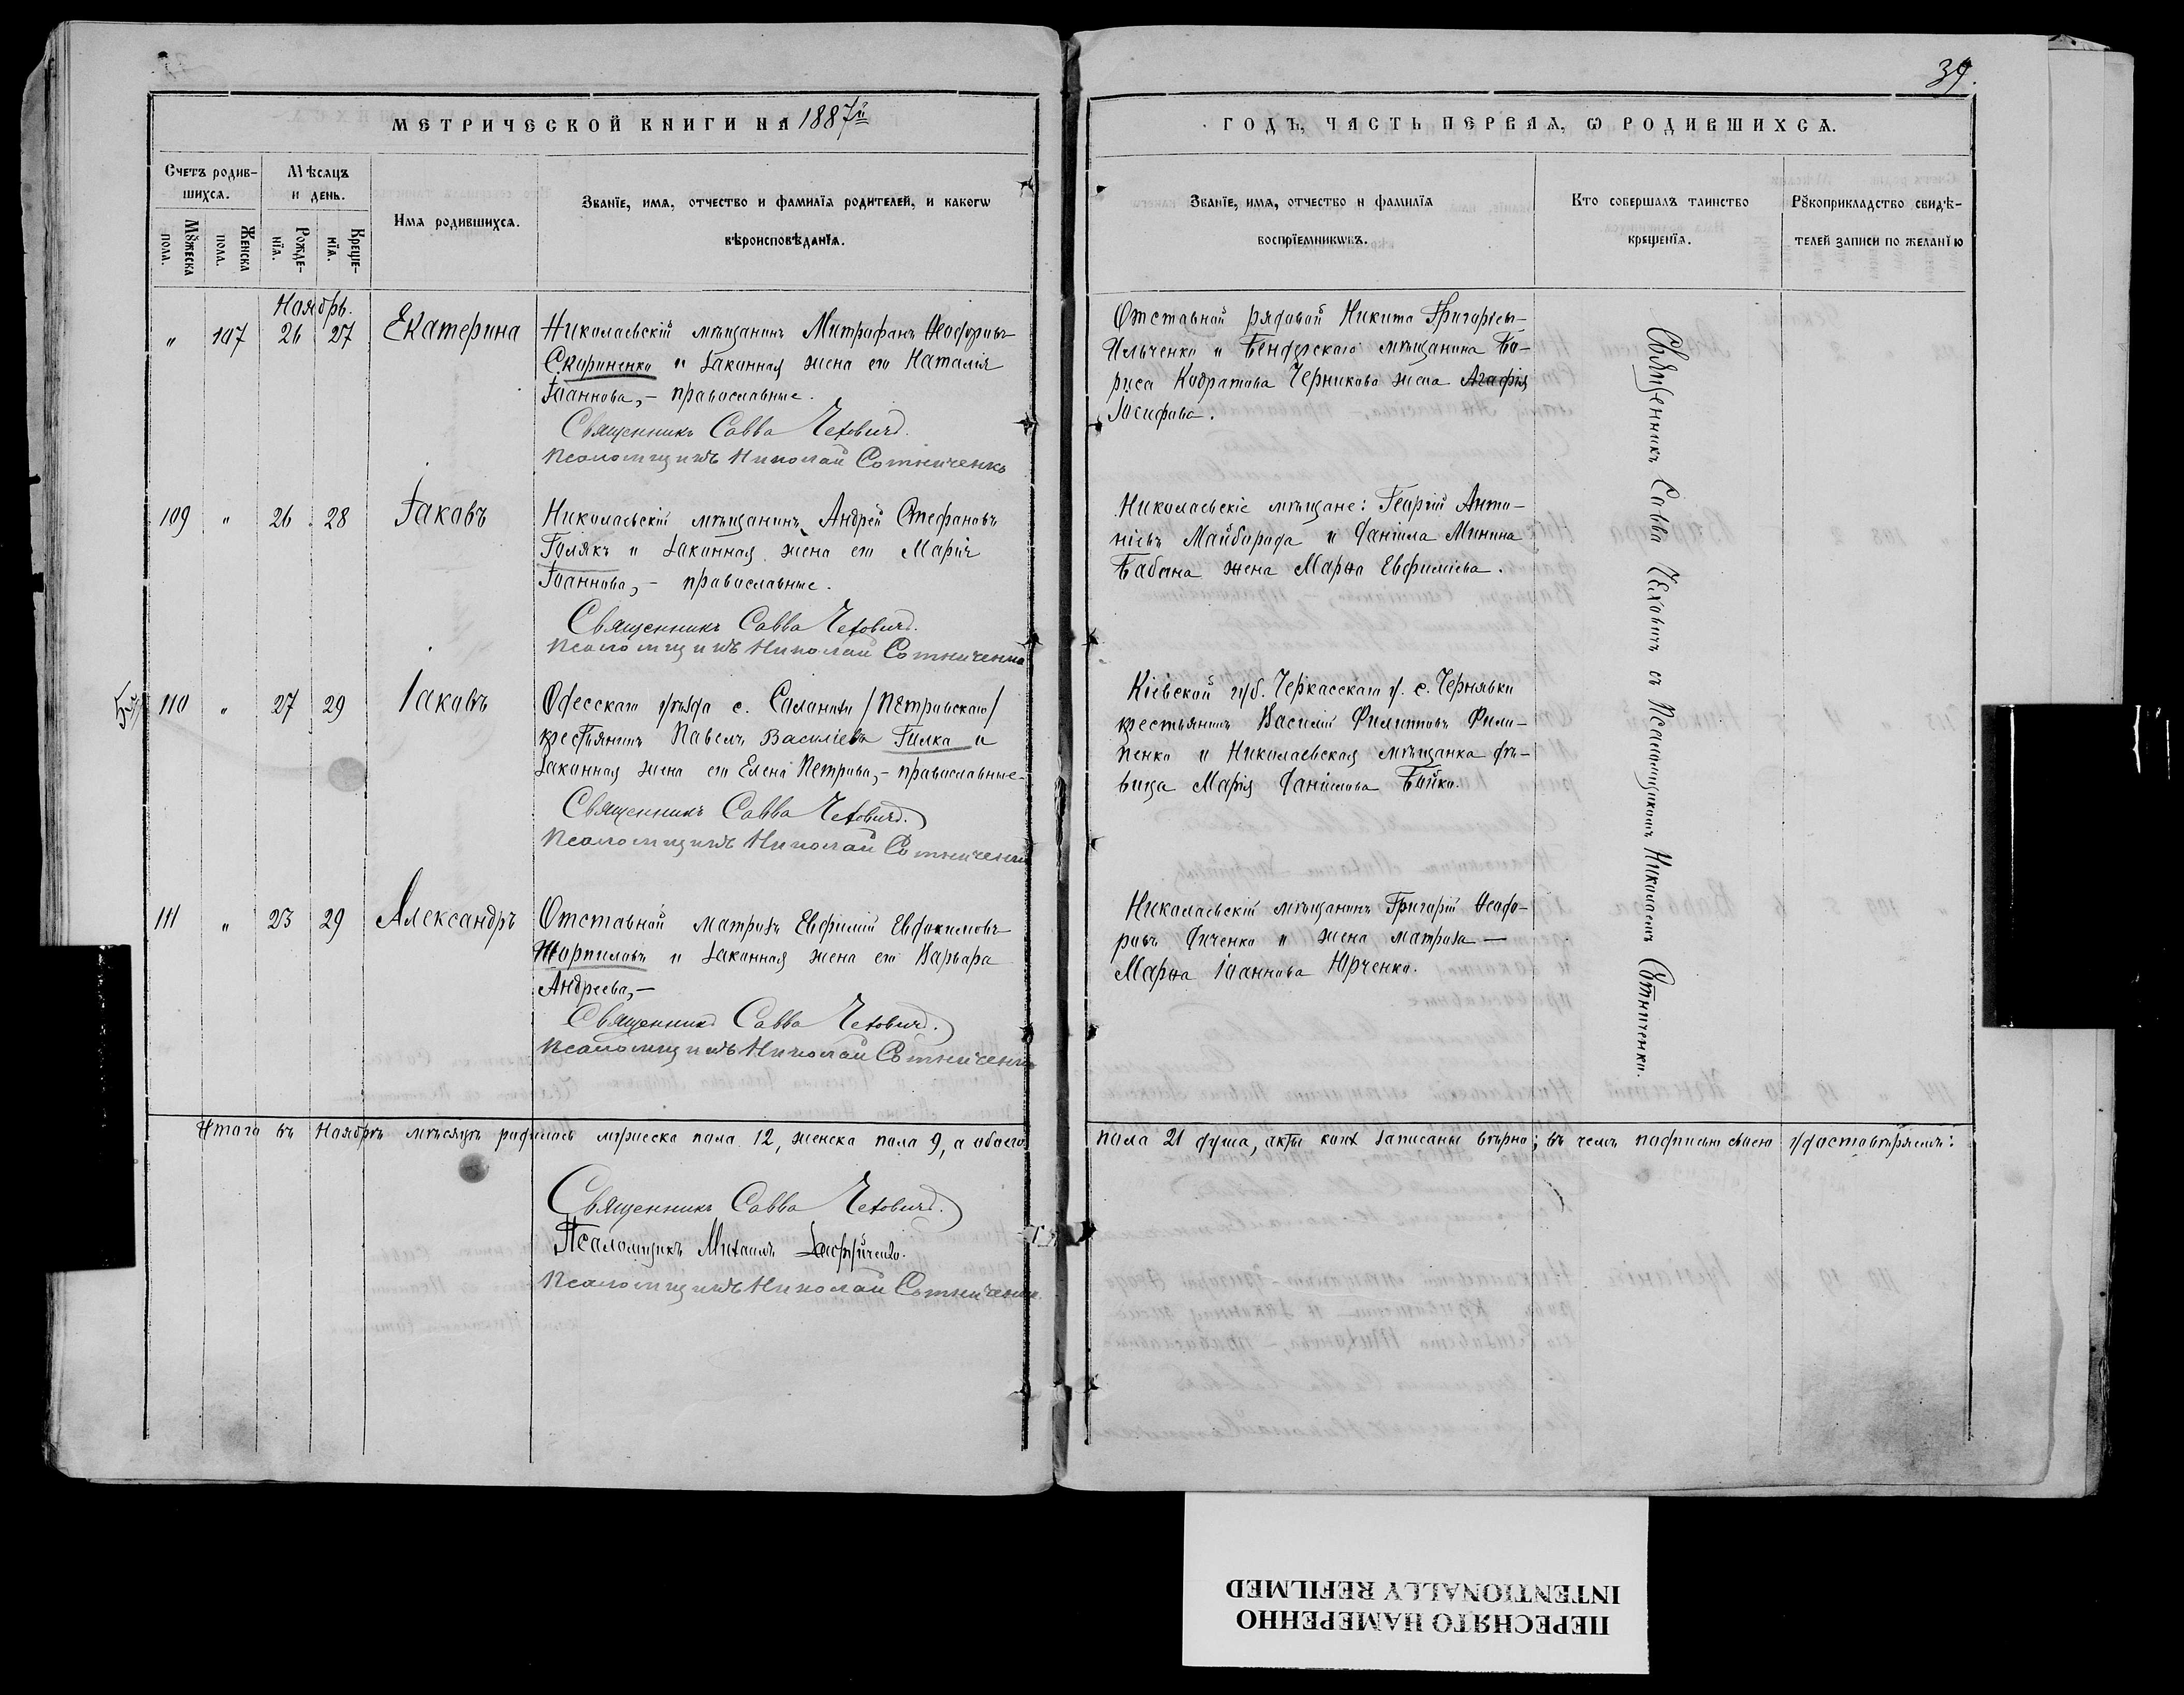 39.
МЕТРИЧЕСКОЙ КНИГИ НА 1887й
ГОДЪ, ЧАСТЬ ПЕРВАЯ, Ѡ РОДИВШИХСѦ.
Счетъ родив-
шихсѧ.
Мѣсяцъ
и день.
Имѧ родившихсѧ.
Званїе, имѧ, отчество и фамилїѧ родителей, и какогѡ
вѣроисповѣданїѧ.
Мꙋжеска
пола.
Женска
пола.
Рожде-
нїѧ.
Креще-
нїѧ.
Званїе, имѧ, отчество и фамилїѧ
воспрїемникѡвъ.
Кто совершалъ таинство
крещенїѧ.
Рꙋкоприкладство свидѣ-
телей записи по желанїю
Ноябрь.
" 107 26 27 Екатерина
Николаевскій мѣщанинъ Митрофанъ Ѳеодоровъ
Скориненко и законная жена его Наталія
Іоаннова, – православные.
Священникъ Савва Чехович.
Псаломщикъ Николай Сотниченко
Отставной рядовой Никита Григорьевъ
Ильченко и Бендерскаго мѣщанина Бо-
риса Кодратова Черникова жена Агафія
Іосифова.
109 " 26 28 Іаковъ
Николаевскій мѣщанинъ Андрей Стефановъ
Голякъ и законная жена его Марія
Іоаннова, – православные.
Священникъ Савва Чехович.
Псаломщикъ Николай Сотниченко
Николаевскіе мѣщане: Георгій Анто-
ніевъ Майборода и Даніила Минина
Бабина жена Марѳа Евфиміева.
110 " 27 29 Іаковъ
Одесскаго уѣзда с. Саланихи /Петровскаго/
крестьянинъ Павелъ Василіевъ Гилка и
законная жена его Елена Петрова, – православные.
Священникъ Савва Чехович.
Псаломщикъ Николай Сотниченко
Кіевской губ. Черкасскаго у. с. Чернявки
крестьянинъ Василій Филипповъ Фили-
пенко и Николаевская мѣщанка дѣ-
вица Марія Даніилова Бойко.
111 " 23 29 Александръ
Отставной матрозъ Евфимій Евдокимовъ
Шорпиловъ и законная жена его Варвара
Андреева, –
Священникъ Савва Чехович.
Псаломщикъ Николай Сотниченко
Николаевскій мѣщанинъ Григорій Ѳеодо-
ровъ Диченко и жена матроза –
Марѳа Іоаннова Юрченко.
Священникъ Савва Чеховичъ съ Псаломщикомъ Николаемъ Сотниченко.
Итого въ Ноябрѣ мѣсяцѣ родилось мужеска пола 12, женска пола 9, а обоего
пола 21 душа, акты коихъ записаны вѣрно; въ чемъ подписью своею удостовѣряемъ:
Священникъ Савва Чехович.
Псаломщикъ Михаилъ
Псаломщикъ Николай Сотниченко.
ПЕРЕСНЯТО НАМЕРЕННО
INTENTIONALLY REFILMED